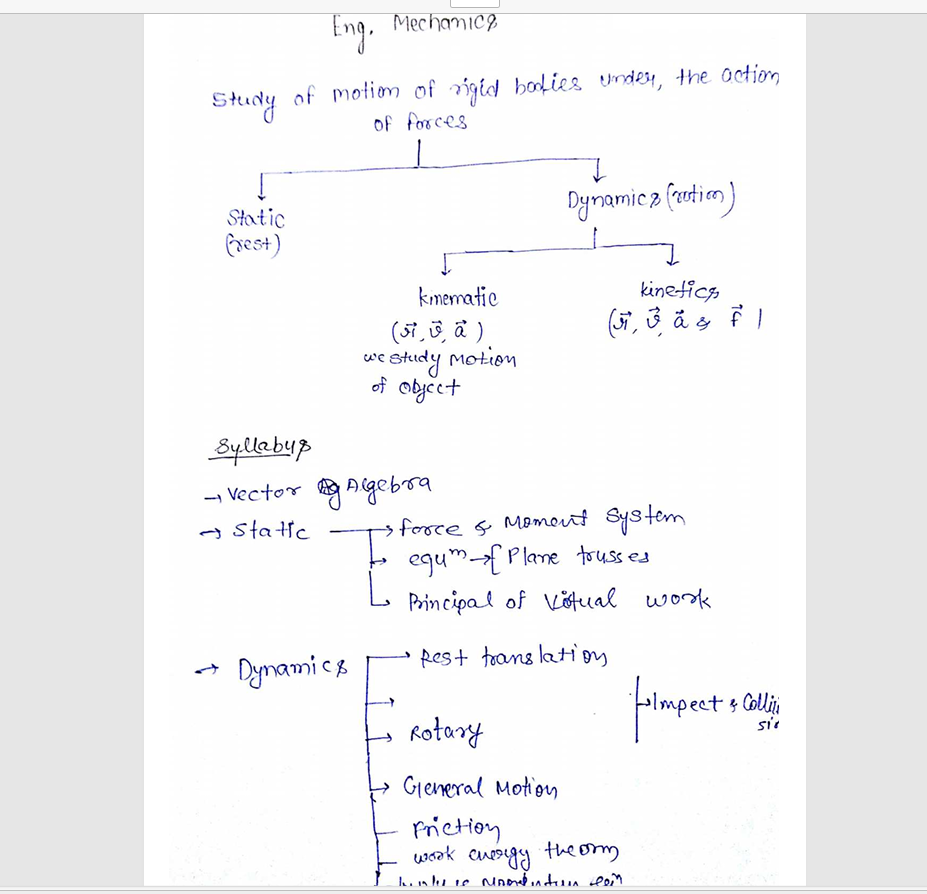 Eng. Mechanics
Study of motion of rigid bodies under, the action
of forces
Static
(rest)
Dynamics (motion)
kinematic
(r⃗, v⃗, a⃗)
we study Motion
of object
kinetics
(r⃗, v⃗, a⃗ & f⃗ |
Syllabus
→ Vector Algebra
→ Static → force & Moment System
→ equm → { Plane trusses
Principal of Virtual work
→ Dynamics → Rest translation
→ Impect & Colli
→ Rotary
→ General Motion
Friction
work energy theorm